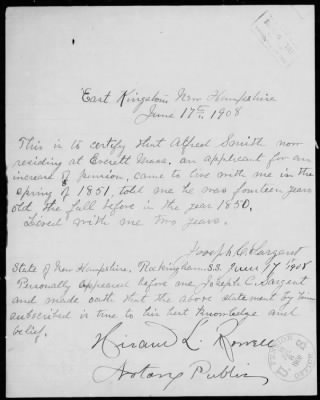 East Kingston New Hampshire
June 17th 1908
This is to certify that Alfred Smith now
residing at Everett Mass. an applicant for an
increase of pension, came to live with me in the
spring of 1851, told me he was fourteen years
old the fall before in the year 1850.
Lived with me two years.
Joseph C. Sargent
State of New Hampshire, Rockingham, S.S. June 17 1908
Personally appeared before me Joseph C. Sargent
and made oath that the above statement by him
subscribed is true to his best knowledge and
belief.
Hiram L. Rowell
Notary Public